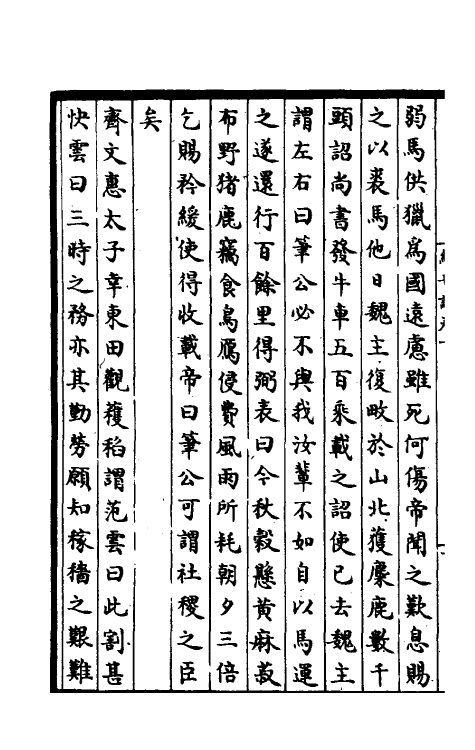 弱馬供獵為國遠慮雖死何傷帝聞之歎息賜
之以裘馬他日魏主復畋於山北獲麋鹿數千
頭詔尚書發牛車五百乘載之詔使已去魏主
謂左右曰筆公必不與我汝輩不如自以馬運
之遂還行百餘里得弼表曰今秋穀懸黄麻菽
布野猪鹿竊食鳥鴈侵費風雨所耗朝夕三倍
乞賜矜緩使得收載帝曰筆公可謂社稷之臣
矣
齊文惠太子幸東田觀穫稻謂范雲曰此割甚
快雲曰三時之務亦其勤勞願知稼穡之艱難